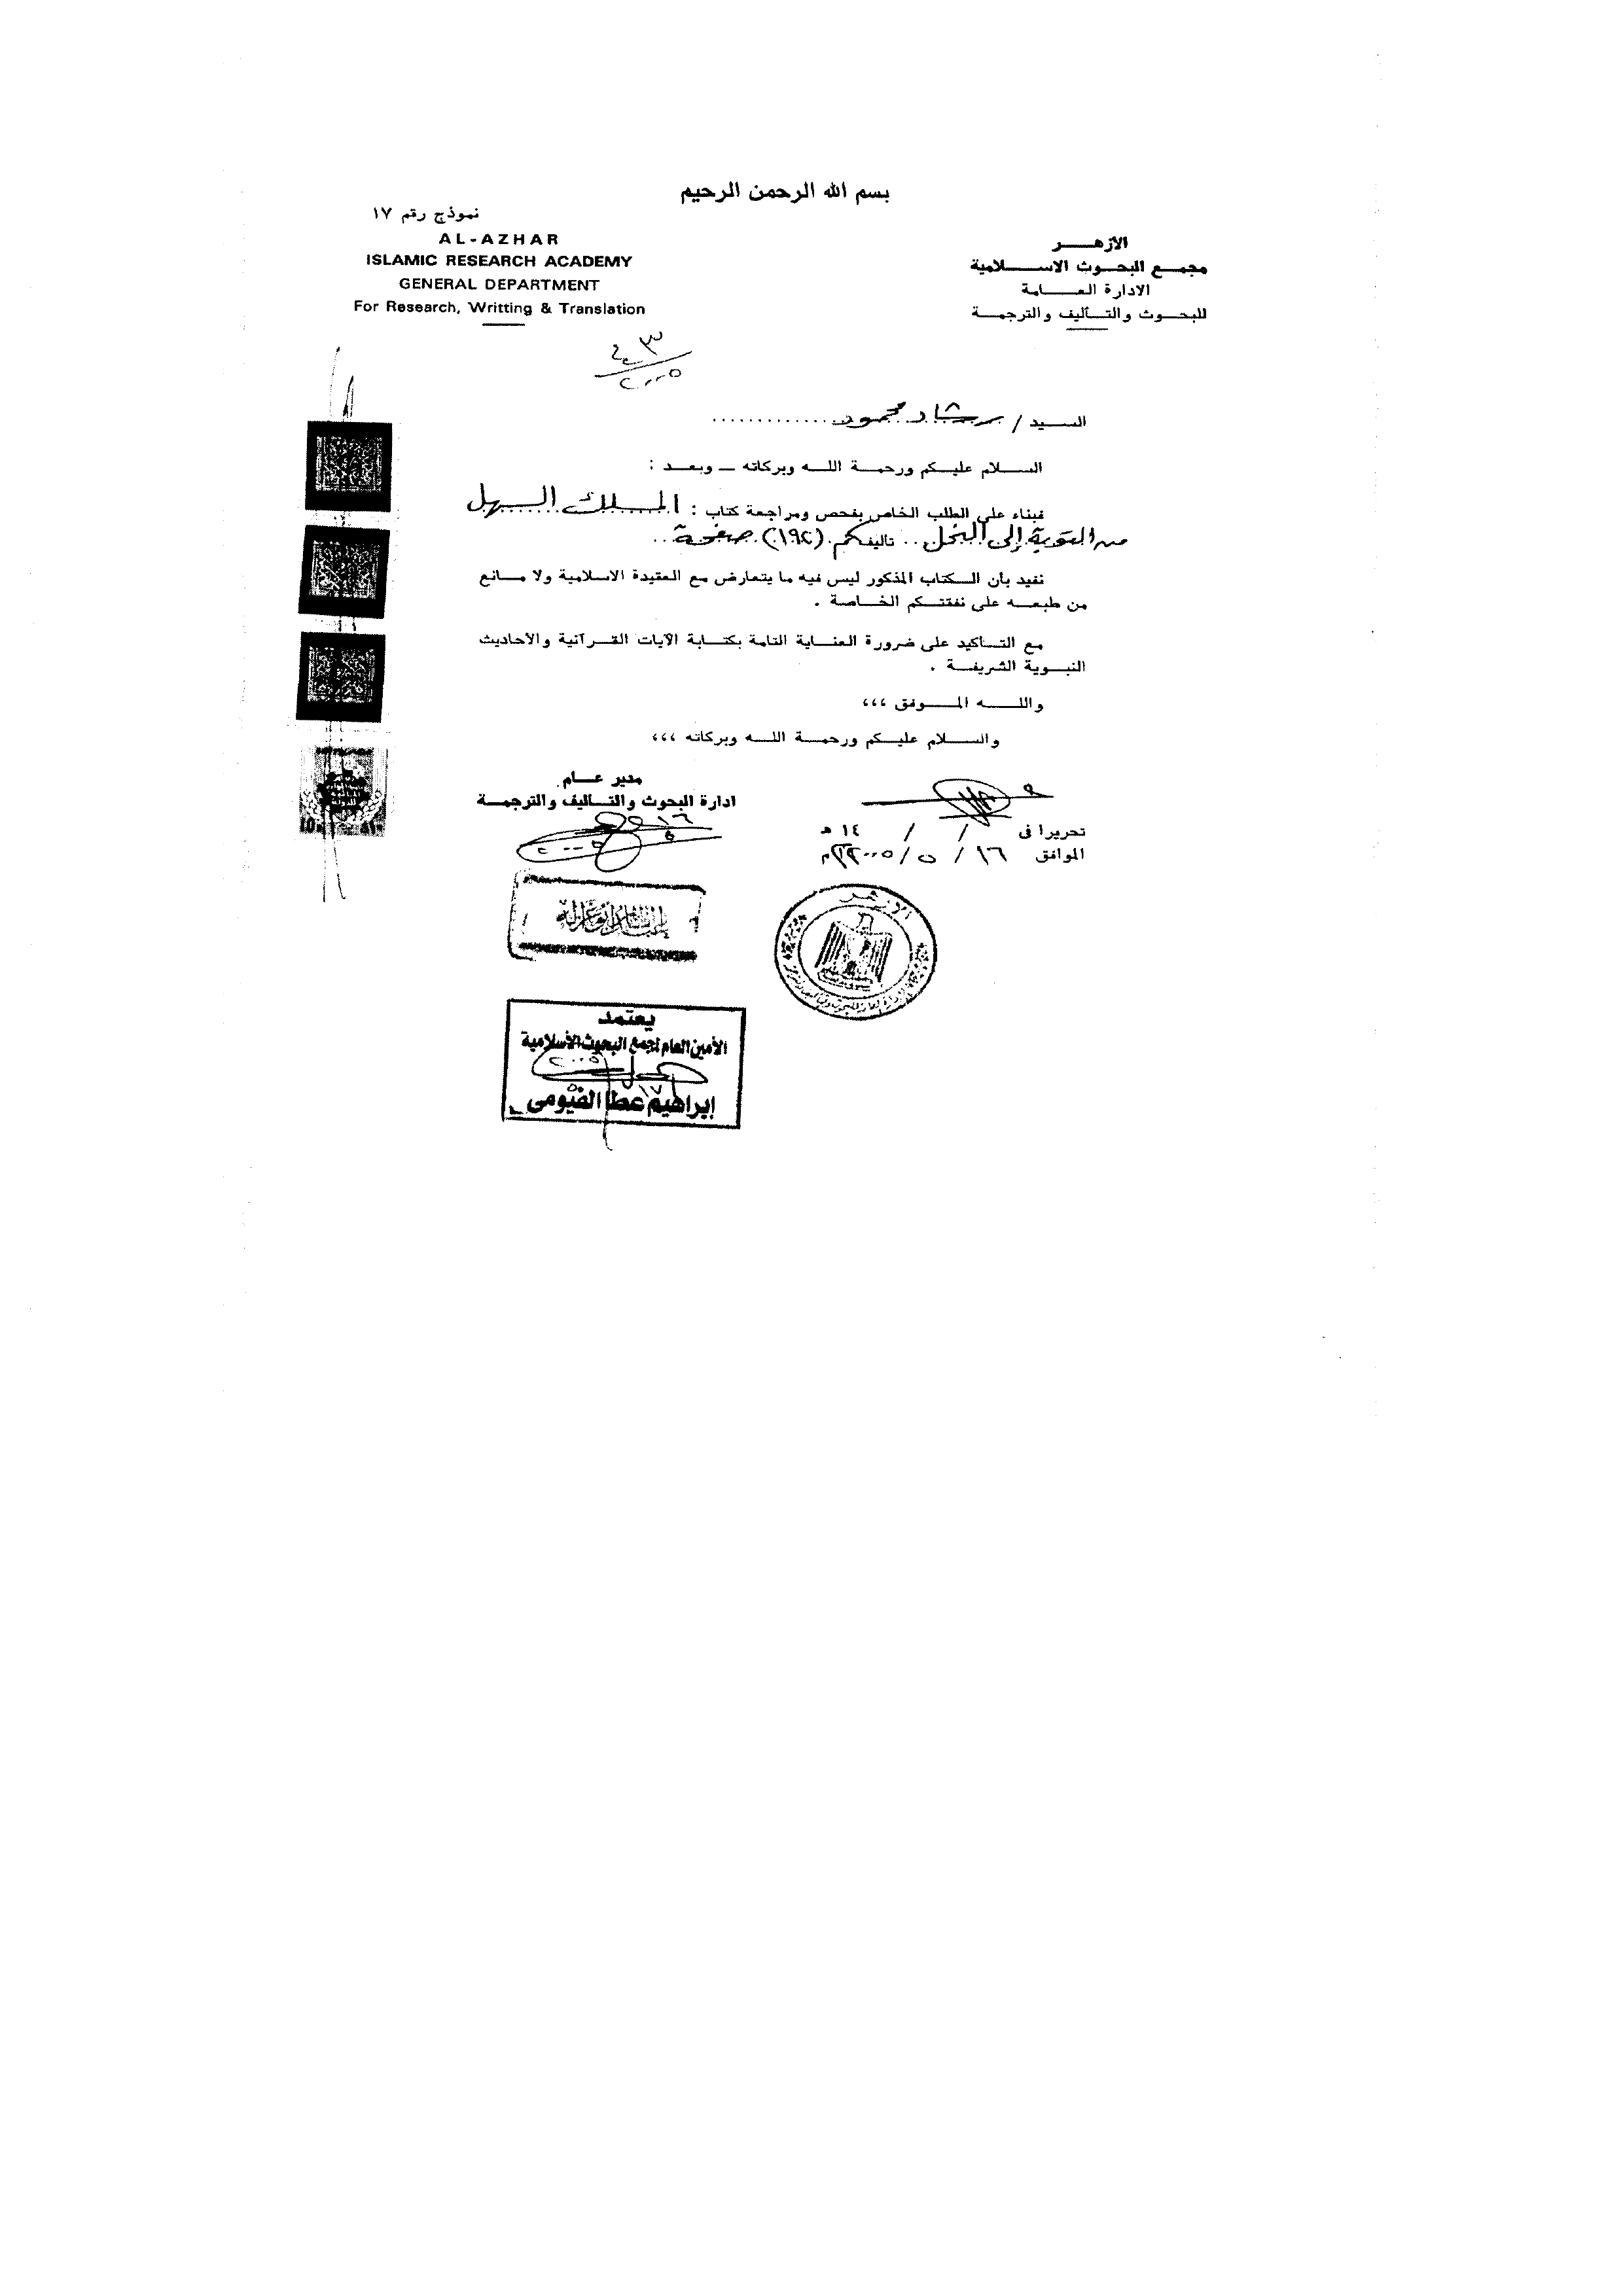 بسم الله الرحمن الرحيم
نموذج رقم ١٧
AL-AZHAR
ISLAMIC RESEARCH ACADEMY
GENERAL DEPARTMENT
For Research, Writting & Translation
الازهـــر
مجمـع البحـوث الاســـلامية
الادارة العـــامة
للبحـوث والتـأليف والترجمـة
السـيد / رشاد محمود
الســلام عليـكم ورحمـة اللـه وبركاته ــ وبعـد :
فبناء على الطلب الخاص بفحص ومراجعة كتاب : المسلك السهل
من التوبة إلى النحل .. تأليفكم (١٩٢) صفحة ..
نفيد بأن الـكتاب المذكور ليس فيه ما يتعارض مع العقيدة الاسلامية ولا مـانع
من طبعـه على نفقتـكم الخـاصة .
مع التـأكيد على ضرورة العنـاية التامة بكتـابة الآيات القـرآنية والأحاديث
النبـوية الشريفـة .
واللــه المــوفق ،،،
والســلام عليـكم ورحمـة اللـه وبركاته ،،،
مدير عــام
ادارة البحوث والتـاليف والترجمـة
١٦
٥
٢٠٠٥
تحريرا فى / / ١٤ هـ
الموافق ١٦ / ٥ / ٢٠٠٥ م
الأزهر
يعتمد
الأمين العام لمجمع البحوث الأسلامية
٢٠٠٥
١٧
إبراهيم عطا الفيومى